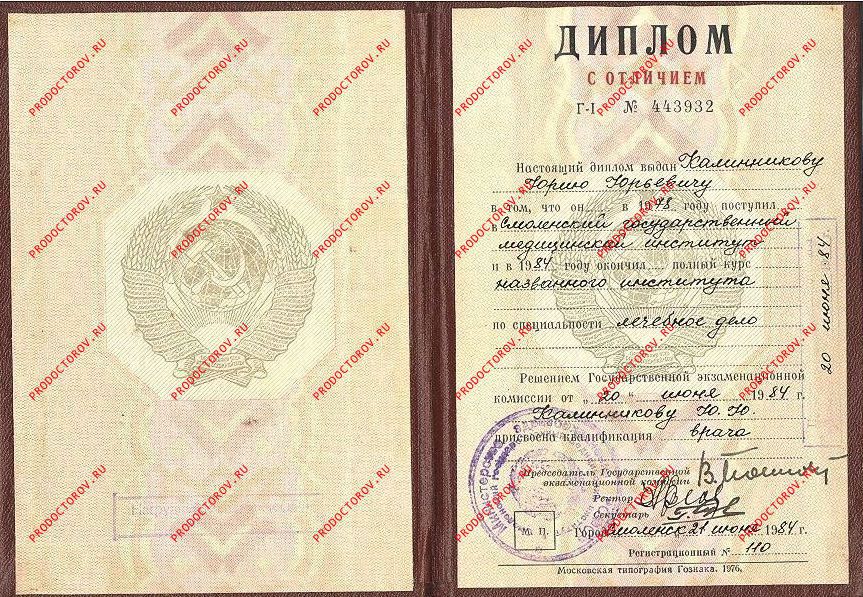 ДИПЛОМ
С ОТЛИЧИЕМ
Г-I № 443932
Настоящий диплом выдан Калинникову
Юрию Юрьевичу
в том, что он в 1978 году поступил
в Смоленский государственный
медицинский институт
и в 1984 году окончил полный курс
названного института
по специальности лечебное дело
Решением Государственной экзаменационной
комиссии от „20" июня 1984 г.
Калинникову Ю. Ю.
присвоена квалификация врача
Председатель Государственной
экзаменационной комиссии
Ректор
Секретарь
М. П.
Город Смоленск 21 июня 1984 г.
Регистрационный № 110
Московская типография Гознака. 1976.
20 июня 84
PRODOCTOROV.RU